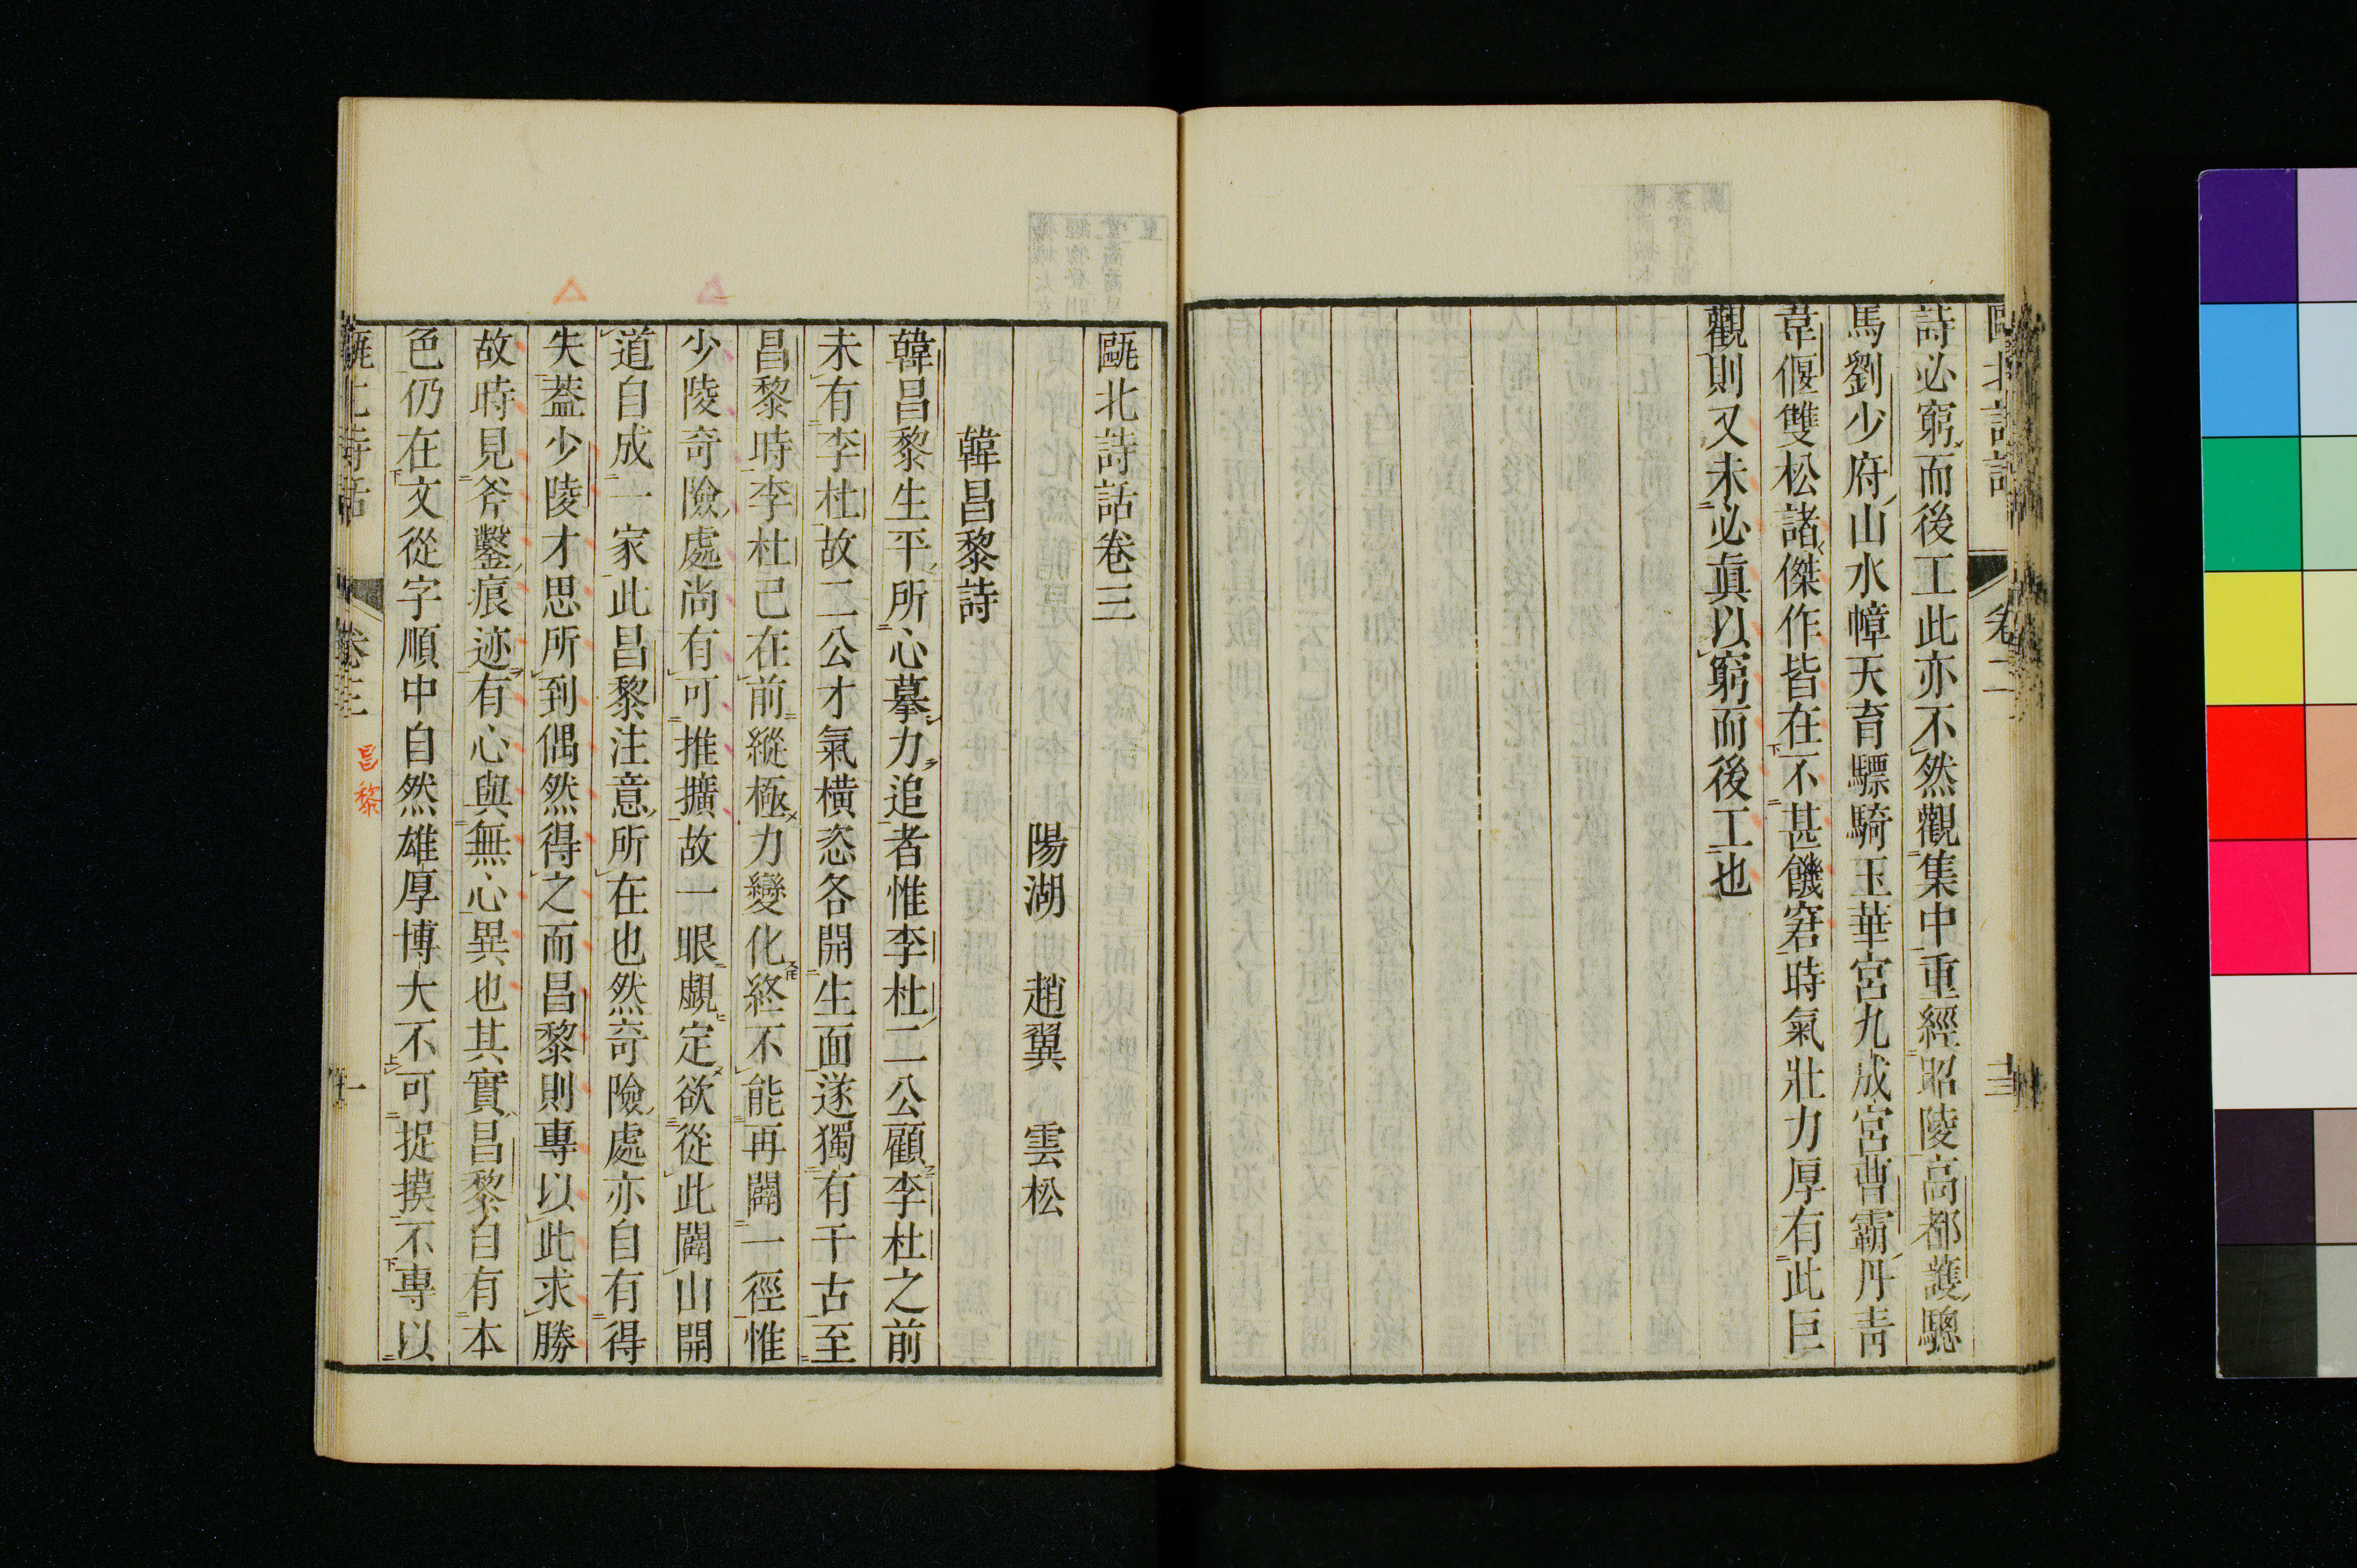 詩必窮而後工此亦不然觀集中重經昭陵高都護驄
馬劉少府山水幛天育驃騎玉華宮九成宮曹霸丹青
韋偃雙松諸傑作皆在不甚饑窘時氣壯力厚有此巨
觀則又未必眞以窮而後工也
甌北詩話卷三
陽湖 趙翼 雲松
韓昌黎詩
韓昌黎生平所心摹力追者惟李杜二公顧李杜之前
未有李杜故二公才氣橫恣各開生面遂獨有千古至
昌黎時李杜已在前縱極力變化終不能再闢一徑惟
少陵奇險處尚有可推擴故一眼覷定欲從此闢山開
道自成一家此昌黎注意所在也然奇險處亦自有得
失蓋少陵才思所到偶然得之而昌黎則專以此求勝
故時見斧鑿痕迹有心與無心異也其實昌黎自有本
色仍在文從字順中自然雄厚博大不可捉摸不專以
卷三
昌黎
一